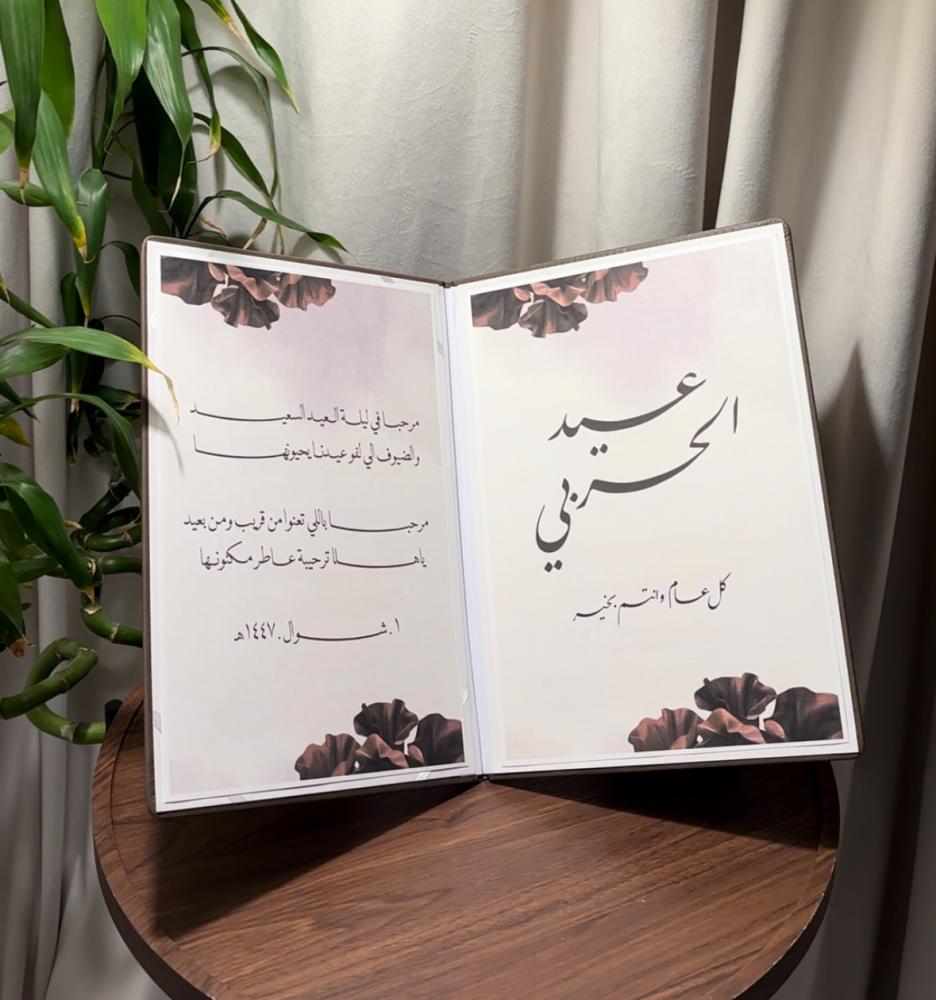 عيد
الحربي
كل عام وانتم بخير
مرحبا في ليلة العيد السعيد
والضيوف الي لفو عيدنا يحيونها
مرحبا ياللي تعنوا من قريب ومن بعيد
ياهلا ترحيبة عاطر مكنونها
١. شوال. ١٤٤٧هـ